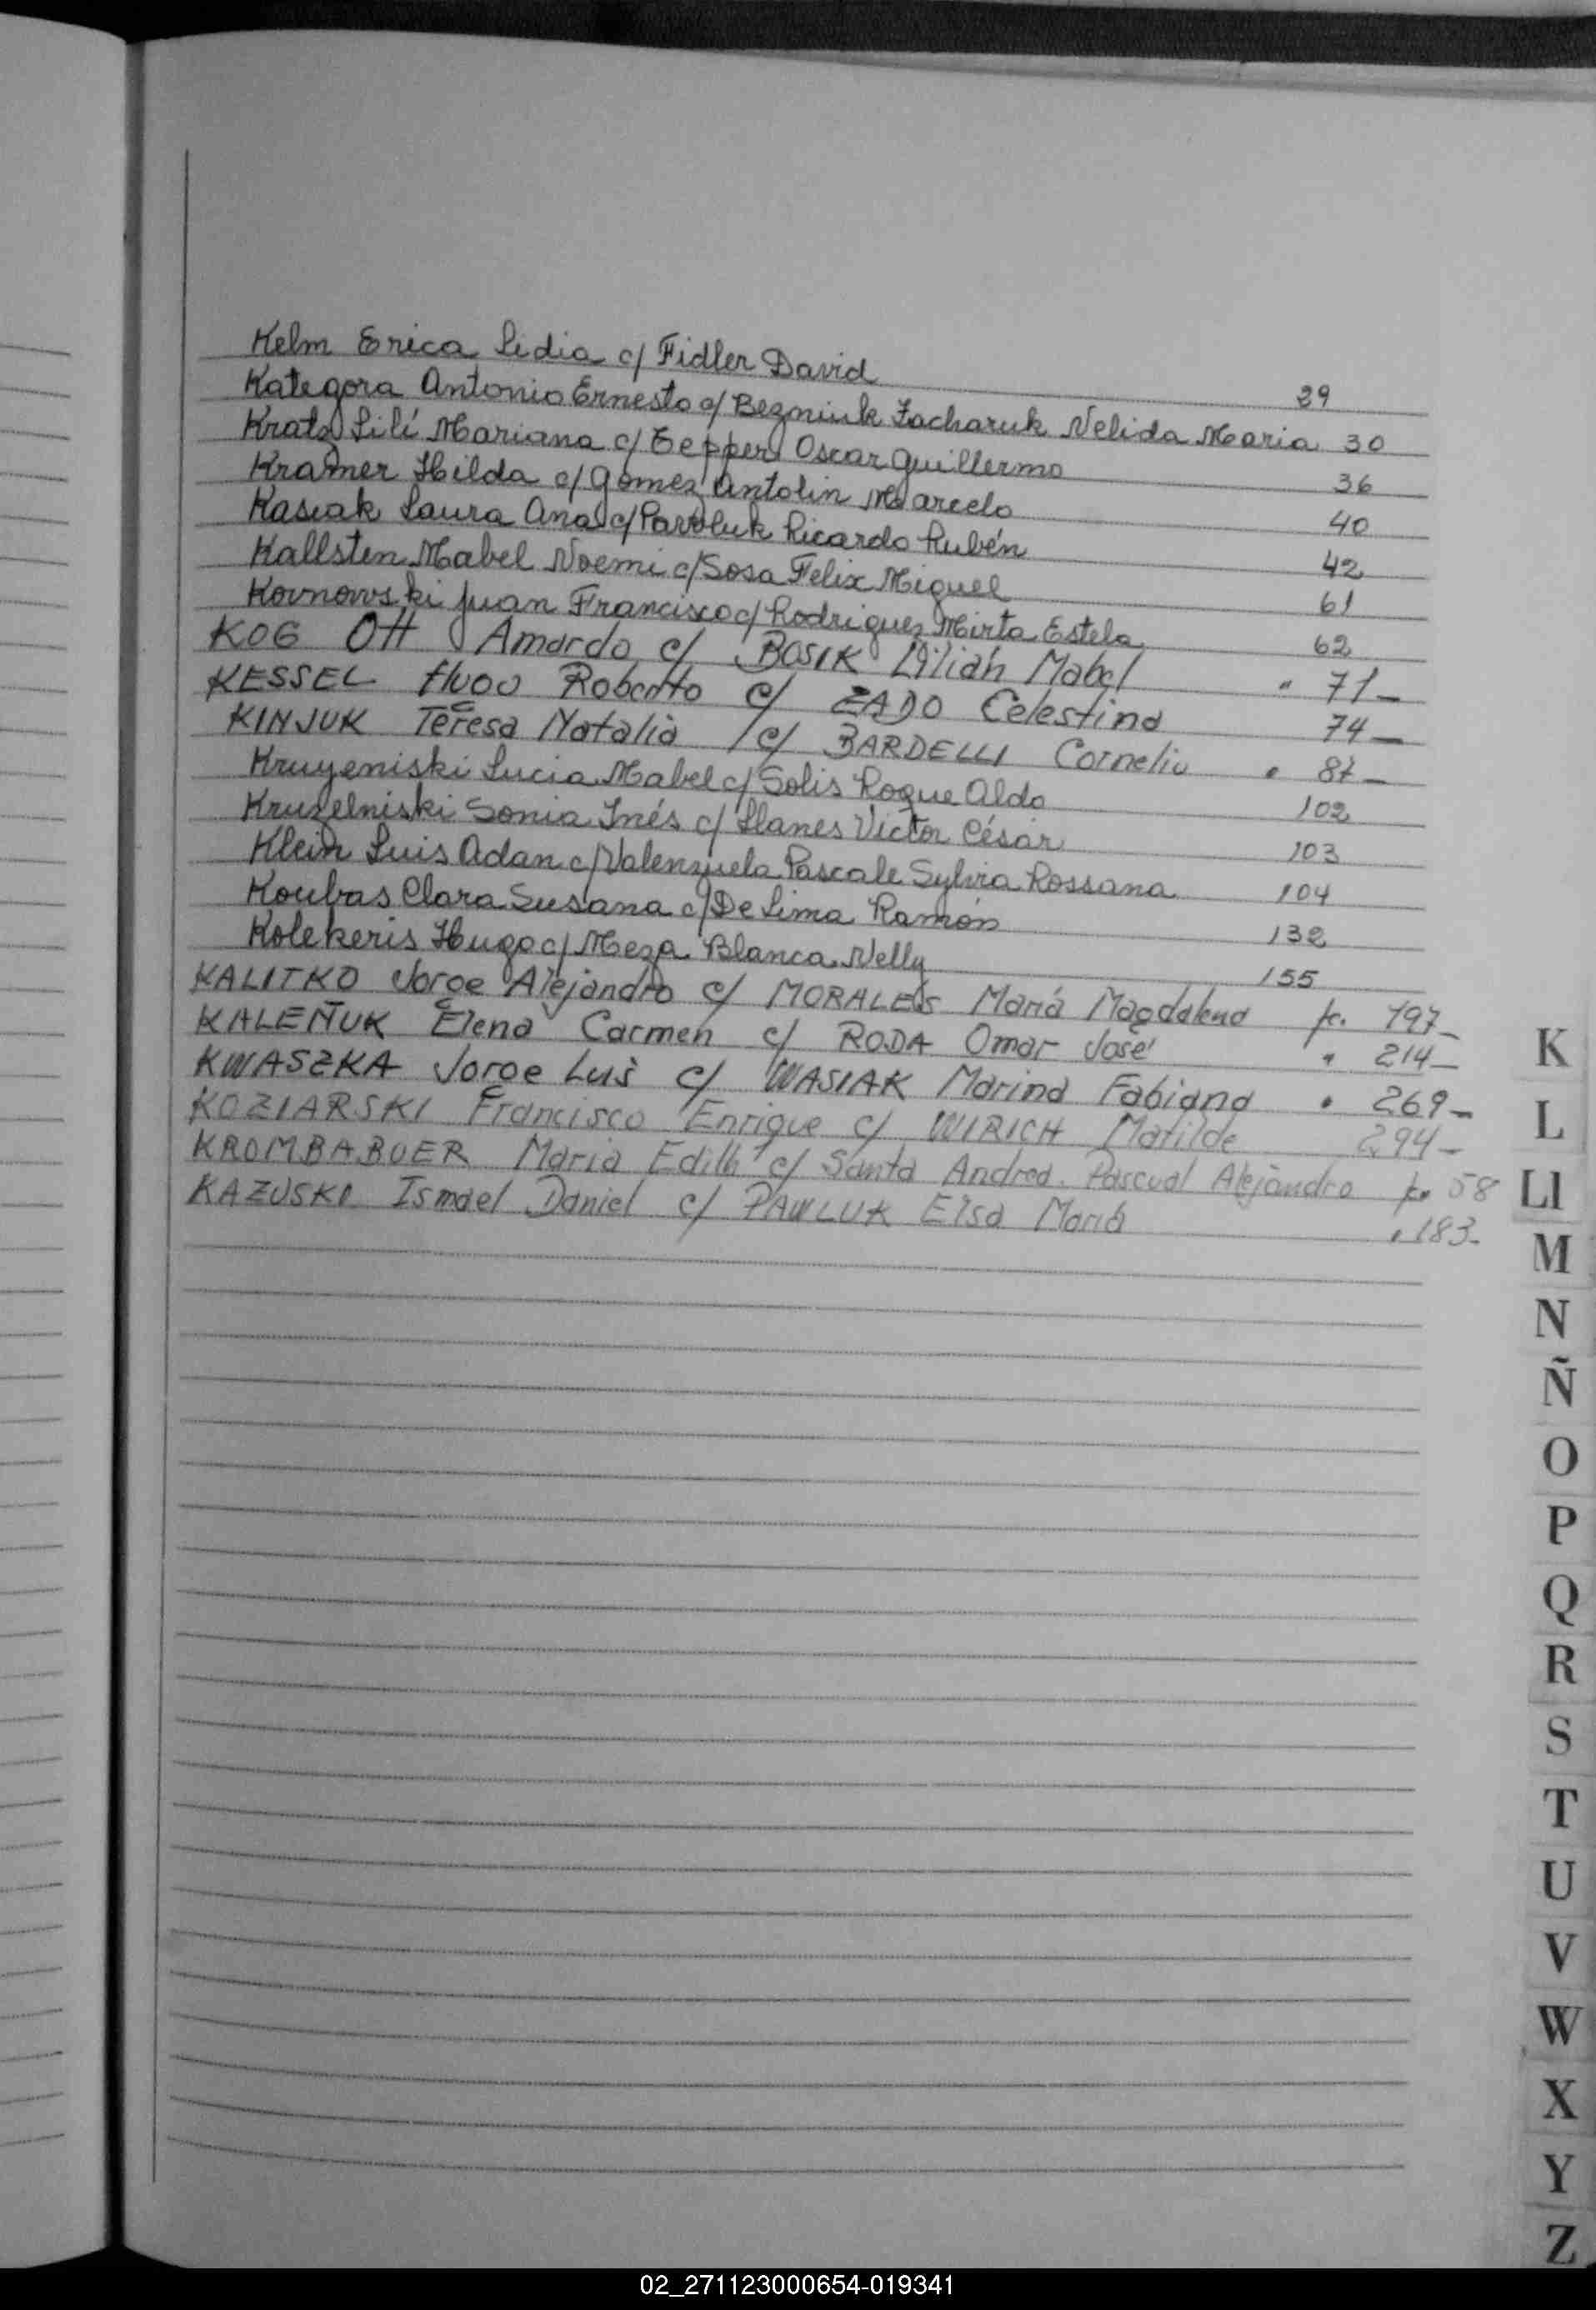 Kelm Erica Lidia c/ Fidler David 29
Kategora Antonio Ernesto c/ Bezniuk Zacharuk Nelida Maria 30
Kratz Lilí Mariana c/ Tepper Oscar Guillermo 36
Kramer Hilda c/ Gomez Antolin Marcelo 40
Kasiak Laura Ana c/ Pavoluk Ricardo Rubén 42
Kallsten Mabel Noemi c/ Sosa Felix Miguel 61
Kovnowski Juan Francisco c/ Rodriguez Mirta Estela 62
KOG Ott Amardo c/ BOSIK Lilian Mabel " 71-
KESSEL Hugo Roberto c/ ZADO Celestina 74-
KINJUK Teresa Natalia c/ BARDELLI Cornelio " 87-
Kruyeniski Lucia Mabel c/ Solis Roque Aldo 102
Kruzelniski Sonia Inés c/ Llanes Victor César 103
Klein Luis Adan c/ Valenzuela Pascale Sylvia Rossana 104
Koubas Clara Susana c/ De Lima Ramón 132
Kolekeris Hugo c/ Meza Blanca Nelly 155
KALITKO Jorge Alejandro c/ MORALES María Magdalena fc. 197-
KALEÑUK Elena Carmen c/ RODA Omar José " 214-
KWASZKA Jorge Luis c/ WASIAK Marina Fabiana " 269-
KOZIARSKI Francisco Enrique c/ WIRICH Matilde 294-
KROMBABUER Maria Edith c/ Santa Andrea Pascual Alejandro fc. 58
KAZUSKI Ismael Daniel c/ PAWLUK Elsa María " 183-
K
L
Ll
M
N
Ñ
O
P
Q
R
S
T
U
V
W
X
Y
Z
02_271123000654-019341